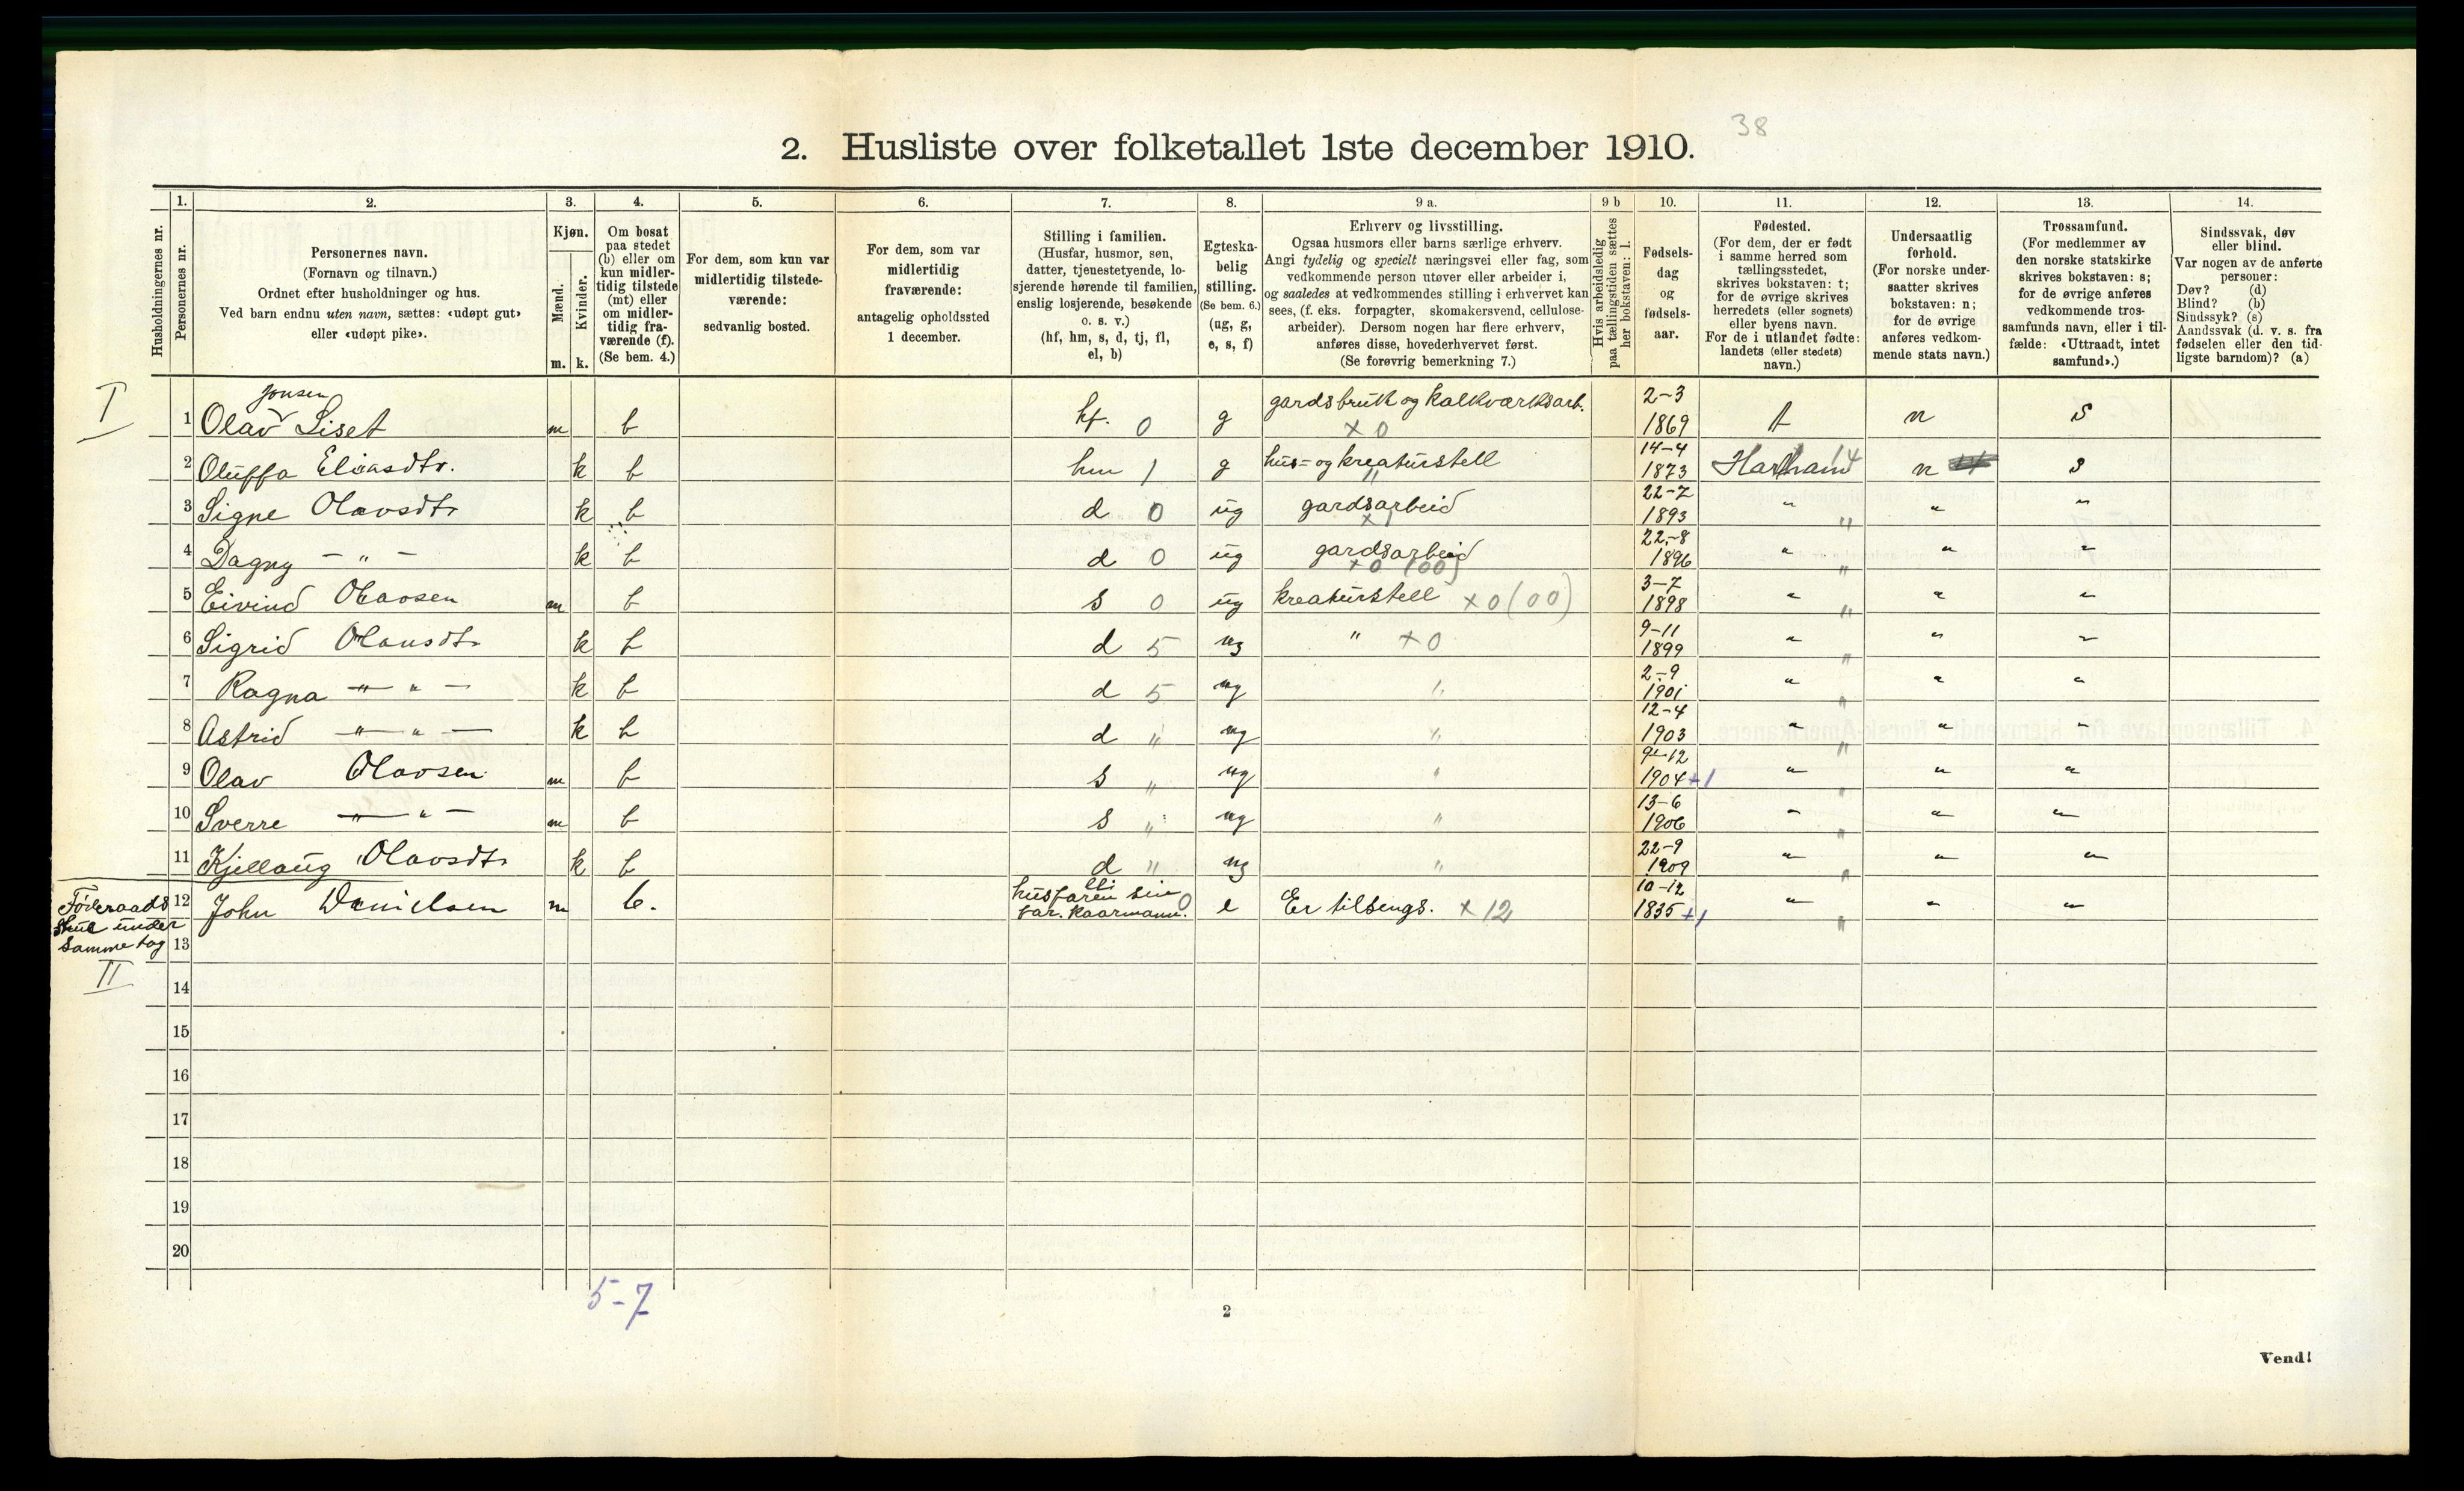 38
2. Husliste over folketallet 1ste december 1910.
Husholdningernes nr.
1.
Personernes nr.
2.
Personernes navn.
(Fornavn og tilnavn.)
Ordnet efter husholdninger og hus.
Ved barn endnu uten navn, sættes: «udøpt gut»
eller «udøpt pike».
3.
Kjøn.
Mænd.
Kvinder.
m. k.
4.
Om bosat
paa stedet
(b) eller om
kun midler-
tidig tilstede
(mt) eller
om midler-
tidig fra-
værende (f).
(Se bem. 4.)
5.
For dem, som kun var
midlertidig tilstede-
værende:
sedvanlig bosted.
6.
For dem, som var
midlertidig
fraværende:
antagelig opholdssted
1 december.
7.
Stilling i familien.
(Husfar, husmor, søn,
datter, tjenestetyende, lo-
sjerende hørende til familien,
enslig losjerende, besøkende
o. s. v.)
(hf, hm, s, d, tj, fl,
el, b)
8.
Egteska-
belig
stilling.
(Se bem. 6.)
(ug, g,
e, s, f)
9 a.
Erhverv og livsstilling.
Ogsaa husmors eller barns særlige erhverv.
Angi tydelig og specielt næringsvei eller fag, som
vedkommende person utøver eller arbeider i,
og saaledes at vedkommendes stilling i erhvervet kan
sees, (f. eks. forpagter, skomakersvend, cellulose-
arbeider). Dersom nogen har flere erhverv,
anføres disse, hovederhvervet først.
(Se forøvrig bemerkning 7.)
9 b
Hvis arbeidsledig
paa tællingstiden sættes
her bokstaven: l.
10.
Fødsels-
dag
og
fødsels-
aar.
11.
Fødested.
(For dem, der er født
i samme herred som
tællingsstedet,
skrives bokstaven: t;
for de øvrige skrives
herredets (eller sognets)
eller byens navn.
For de i utlandet fødte:
landets (eller stedets)
navn.)
12.
Undersaatlig
forhold.
(For norske under-
saatter skrives
bokstaven: n;
for de øvrige
anføres vedkom-
mende stats navn.)
13.
Trossamfund.
(For medlemmer av
den norske statskirke
skrives bokstaven: s;
for de øvrige anføres
vedkommende tros-
samfunds navn, eller i til-
fælde: «Uttraadt, intet
samfund».)
14.
Sindssvak, døv
eller blind.
Var nogen av de anførte
personer:
Døv? (d)
Blind? (b)
Sindssyk? (s)
Aandssvak (d. v. s. fra
fødselen eller den tid-
ligste barndom)? (a)
I
Jonsen
1 Olav Liset m b hf. 0 g gardsbruk og kalkværksarb. x 0 2-3 1869 t n s
2 Oluffa Eliasdtr. k b hm 1 g hus- og kreaturstell " 14-4 1873 14 n s
3 Signe Olavsdtr k b d 0 ug gardsarbeid x 1 22-7 1893 " " " "
4 Dagny - " - k b d 0 ug gardsarbeid x 0 (00) 22-8 1896 " " " "
5 Eivind Olavsen m b s 0 ug kreaturstell x 0 (00) 3-7 1898 " " " "
6 Sigrid Olavsdtr k b d 5 ug " x 0 9-11 1899 " " " "
7 Ragna - " - " - k b d 5 ug " 2-9 1901 " " " "
8 Astrid - " - " - k b d " ug " 12-4 1903 " " " "
9 Olav Olavsen m b s " ug " 9-12 1904 +1 " " " "
10 Sverre - " - " - m b s " ug " 13-6 1906 " " " "
11 Kjellaug Olavsdtr k b d " ug " 22-9 1909 " " " "
Føderaads
stue under
samme tag
II
12 John Danielsen m b. husfaren sin far. Kaarmann. 0 e Er tilsengs. x 12 10-12 1835 +1 " " " "
13
14
15
16
17
18
19
20
5-7
2
Vend!